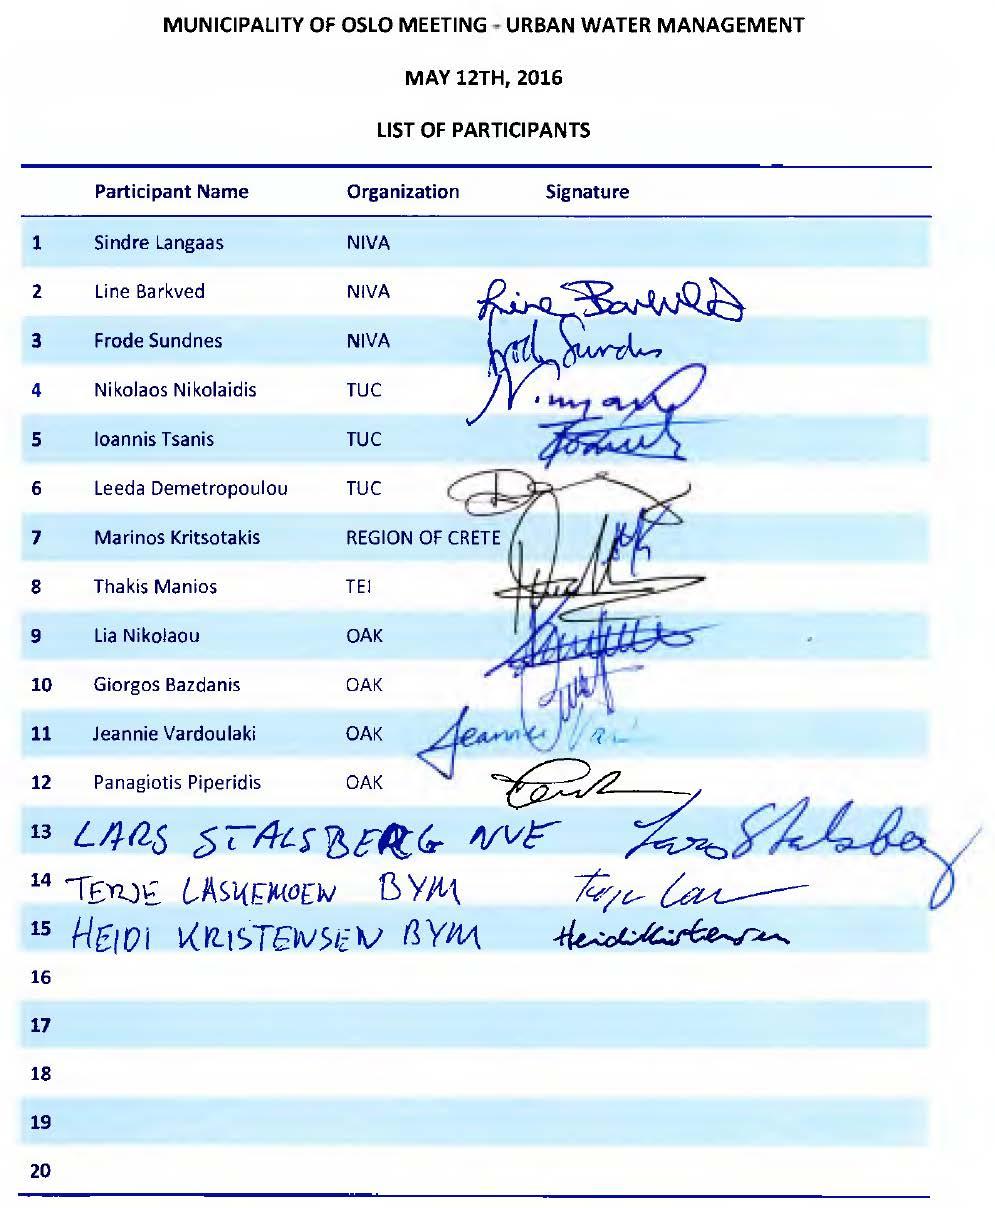 MUNICIPALITY OF OSLO MEETING - URBAN WATER MANAGEMENT
MAY 12TH, 2016
LIST OF PARTICIPANTS
Participant Name Organization Signature
1 Sindre Langaas NIVA
2 Line Barkved NIVA Line Barkved
3 Frode Sundnes NIVA Frode Sundnes
4 Nikolaos Nikolaidis TUC
5 Ioannis Tsanis TUC
6 Leeda Demetropoulou TUC
7 Marinos Kritsotakis REGION OF CRETE
8 Thakis Manios TEI
9 Lia Nikolaou OAK
10 Giorgos Bazdanis OAK
11 Jeannie Vardoulaki OAK Jeannie
12 Panagiotis Piperidis OAK
13 LARS STALSBERG NVE Lars Stalsberg
14 TERJE LASKEMOEN BYM Terje
15 HEIDI KRISTENSEN BYM Heidi Kristensen
16
17
18
19
20